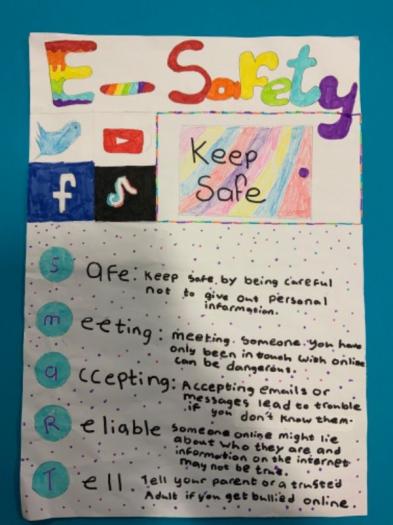 E-Safety
f
Keep
Safe
Safe: Keep safe by being careful
not to give out personal
information.
meeting: meeting someone you have
only been in touch with online
can be dangerous.
accepting: Accepting emails or
messages lead to trouble
if you don't know them.
Reliable someone online might lie
about who they are and
information on the internet
may not be true.
Tell Tell your parent or a trusted
Adult if you get bullied online.